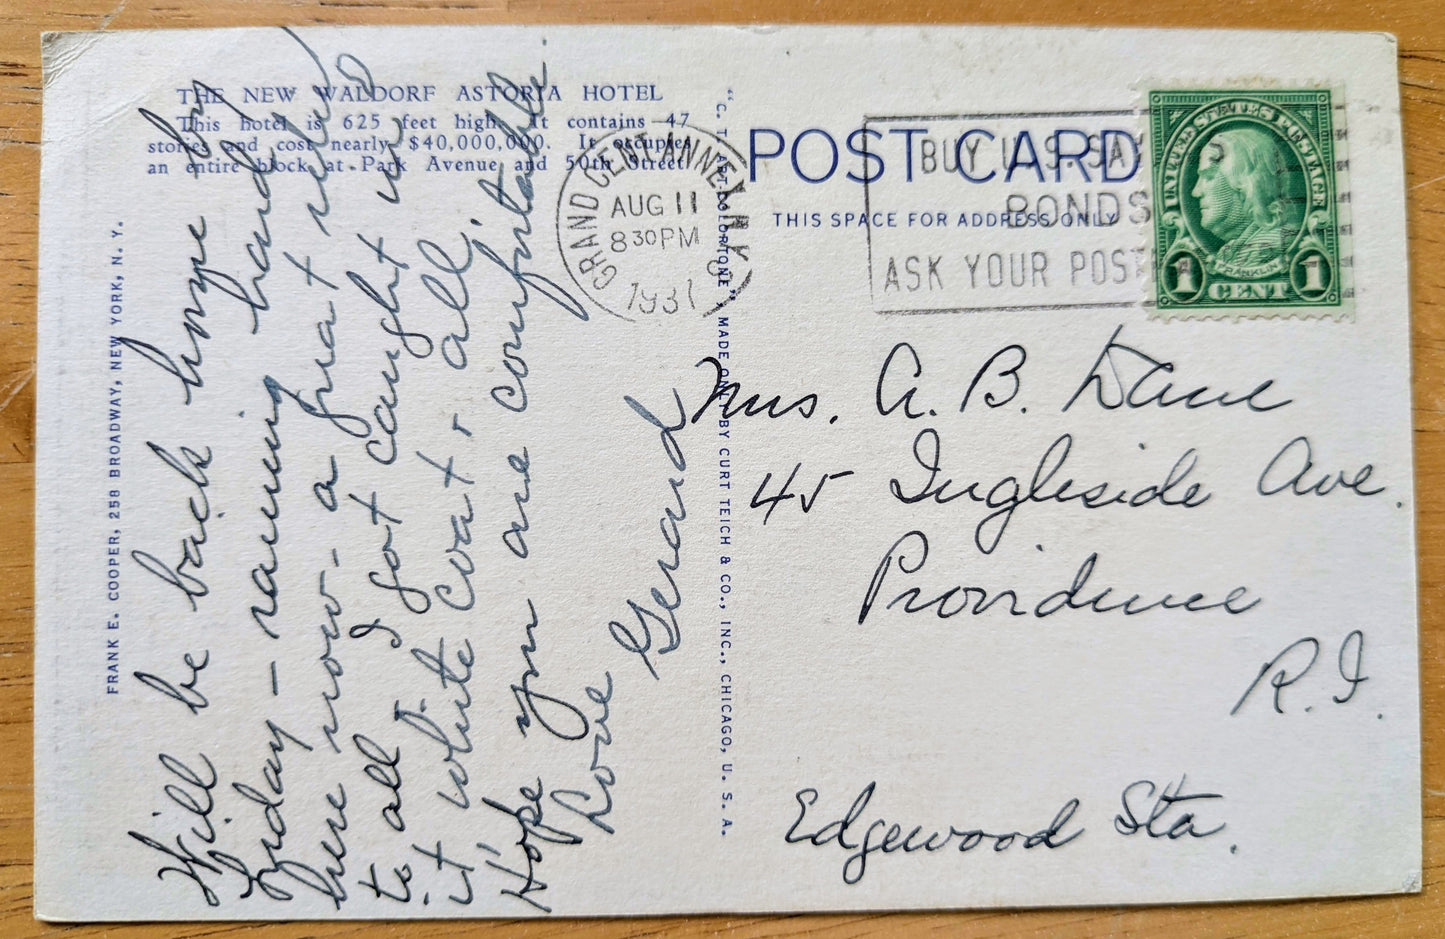 THE NEW WALDORF ASTORIA HOTEL
This hotel is 625 feet high. It contains 47
stories and cost nearly $40,000,000. It occupies
an entire block at Park Avenue and 50th Street.
Will be back home by
Friday - raining hard
here now - a great relief
to all I got caught in
it white coat & all,
Hope you are comfortable.
Love Gerard
FRANK E. COOPER, 258 BROADWAY, NEW YORK, N. Y.
"C. T. ART-COLORTONE" MADE ONLY BY CURT TEICH & CO., INC., CHICAGO, U. S. A.
POST CARD
THIS SPACE FOR ADDRESS ONLY
GRAND CENT. ANNEX, N.Y.
AUG 11
830PM
1937
BUY U.S. SAVINGS
BONDS
ASK YOUR POST
UNITED STATES POSTAGE
FRANKLIN
1 CENT 1
Mrs. A. B. Dane
45 Ingleside Ave.
Providence
R. I.
Edgewood Sta.